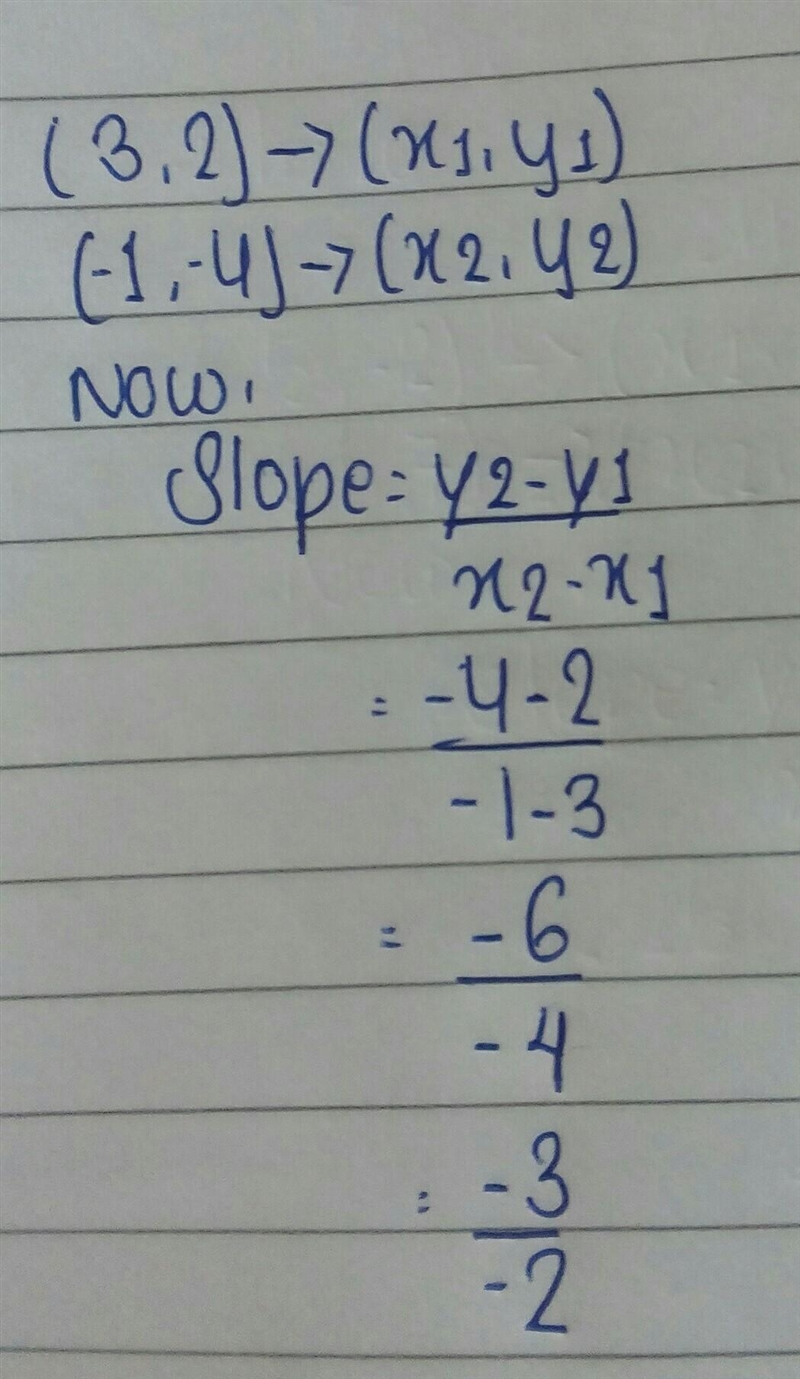 (3,2) → (x1, y1)
(-1,-4) → (x2, y2)
Now,
Slope = y2-y1
x2-x1
= -4-2
-1-3
= -6
-4
= -3
-2